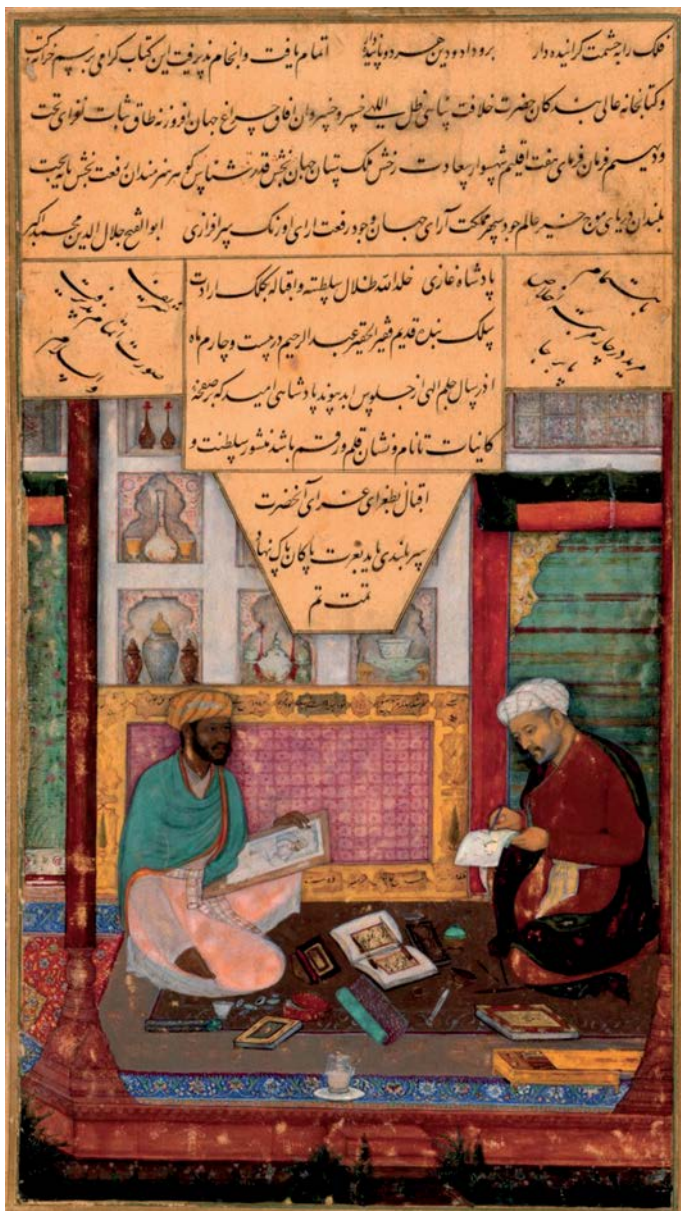 فلک را به چشمت گرانیده دار برو داد و دین هر دو پاینده دار اتمام یافت و انجام پذیرفت این کتاب گرامی برسم خزانه
و کتابخانه عالی بندگان حضرت خلافت پناهی ظل اللهی خسرو خسروان آفاق چراغ جهان افروز نه طاق ثبات تقوای تخت
و دیهیم فرمان فرمای هفت اقلیم شهسوار سعادت رخش ملک ستان جهان بخش قدر شناس گوهر هنرمندان رفعت بخش پایه بخت
بلندان دریای موج خیز عالم جود سپهر مملکت آرای جهان وجود رفعت ارای اورنگ سرافرازی ابو الفتح جلال الدین محمد اکبر
پادشاه غازی خلد الله ظلال سلطنته و اقباله بکلک ارادت
سلک بنده قدیم فقیر الحقیر عبد الرحیم در بیست و چارم ماه
اذر سال چلم الهی از جلوس ابد پیوند پادشاهی امید که بر صفحه
کاینات تا نام و نشان قلم و رقم باشد منشور سلطنت و
اقبال بطغرای غرای آنحضرت
سر بلندی یابد بعزت پاکان پاک نهاد
تمت تم
باهتمام
مرید در چار مرتبه اخلاص
پا بر جا
شریف
صورت اتمام پذیرفت
والسلام